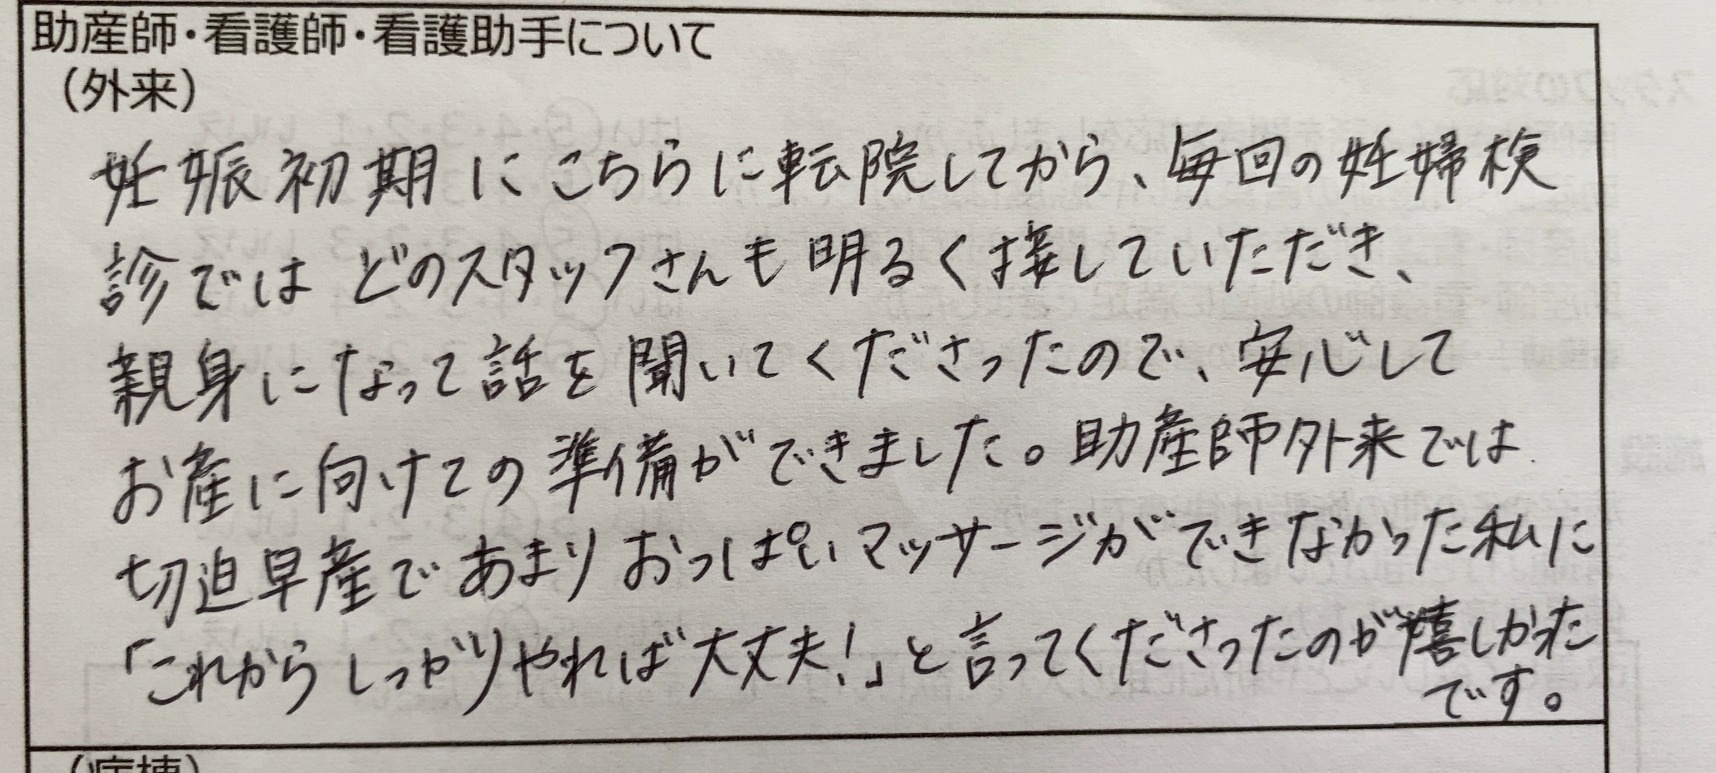 助産師・看護師・看護助手について
（外来）
妊娠初期にこちらに転院してから、毎回の妊婦検
診ではどのスタッフさんも明るく接していただき、
親身になって話を聞いてくださったので、安心して
お産に向けての準備ができました。助産師外来では
切迫早産であまりおっぱいマッサージができなかった私に
「これからしっかりやれば大丈夫!」と言ってくださったのが嬉しかった
です。
（病棟）